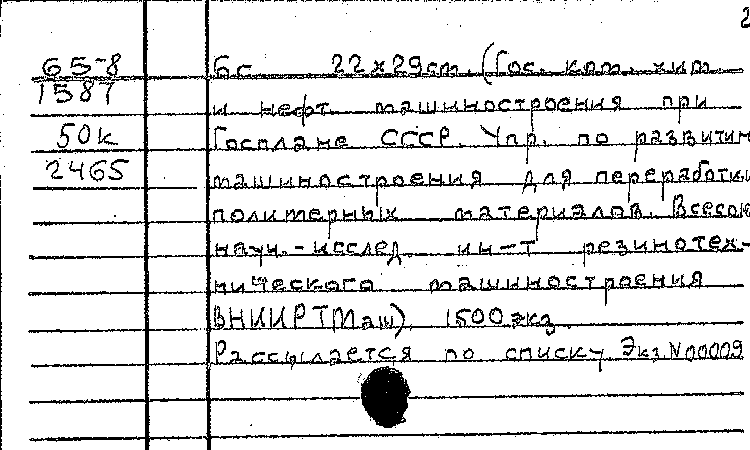 2
65-8
1587
50к
2465
6с 22х29см. (Гос. ком. хим.
и нефт. машиностроения при
Госплане СССР. Упр. по развитию
машиностроения для переработки
полимерных материалов. Всесоюз
научн.-исслед. ин-т резинотех-
нического машиностроения
ВНИИРТМаш). 1500 экз.
Рассылается по списку. Экз. N 00009